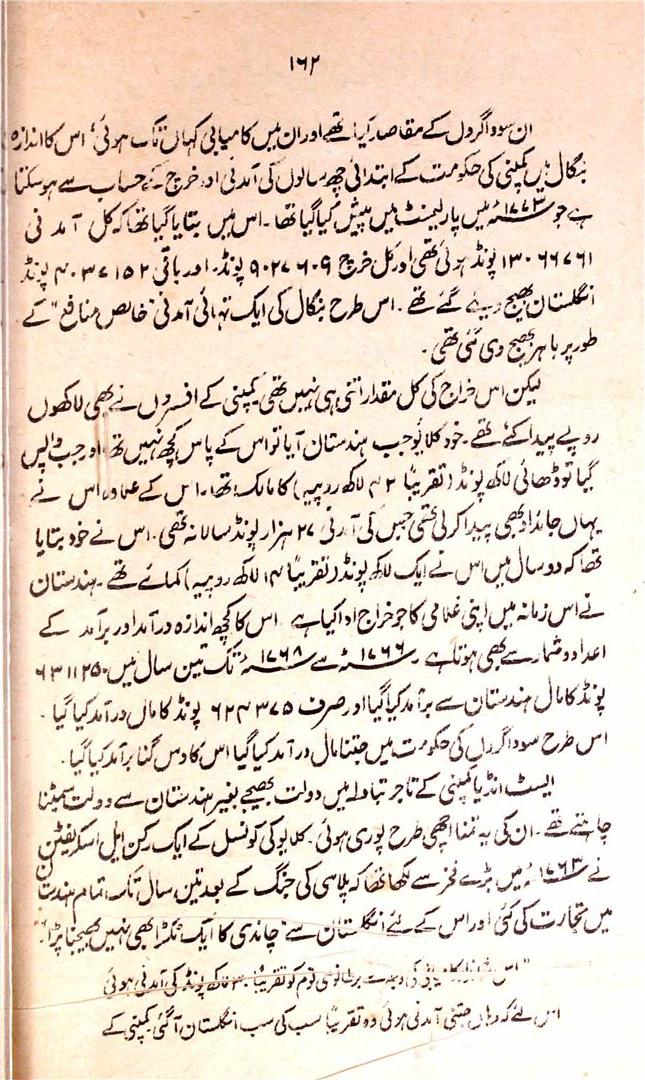 ۱۶۲
ان سوداگروں کے مقاصد کیا تھے اور ان میں کامیابی کہاں تک ہوئی، اس کا اندازہ
بنگال میں کمپنی کی حکومت کے ابتدائی چھ سالوں کی آمدنی اور خرچ کے حساب سے ہو سکتا
ہے جو ۱۷۷۳ء میں پارلیمنٹ میں پیش کیا گیا تھا۔ اس میں بتایا گیا تھا کہ کل آمدنی
۱۳۰۶۶۷۶۱ پونڈ ہوئی تھی اور کل خرچ ۹۰۲۷۶۰۹ پونڈ۔ اور باقی ۴۰۳۷۱۵۲ پونڈ
انگلستان بھیج دیئے گئے تھے۔ اس طرح بنگال کی ایک تہائی آمدنی "خالص منافع" کے
طور پر باہر بھیج دی گئی تھی۔
لیکن اس خراج کی کل مقدار اتنی ہی نہیں تھی۔ کمپنی کے افسروں نے بھی لاکھوں
روپے پیدا کئے تھے۔ خود کلایو جب ہندستان آیا تو اس کے پاس کچھ نہیں تھا اور جب واپس
گیا تو ڈھائی لاکھ پونڈ (تقریباً ۴۲ لاکھ روپیہ) کا مالک تھا۔ اس کے علاوہ اس نے
یہاں جائداد بھی پیدا کر لی تھی جس کی آمدنی ۲۷ ہزار پونڈ سالانہ تھی۔ اس نے خود بتایا
تھا کہ دو سال میں اس نے ایک لاکھ پونڈ (تقریباً ۱۴ لاکھ روپیہ) کمائے تھے۔ ہندستان
نے اس زمانہ میں اپنی غلامی کا جو خراج ادا کیا ہے اس کا کچھ اندازہ درآمد اور برآمد کے
اعداد و شمار سے بھی ہوتا ہے ۱۷۶۶ء سے ۱۷۶۸ء تک تین سال میں ۶۳۱۱۲۵۰
پونڈ کا مال ہندستان سے برآمد کیا گیا اور صرف ۶۲۴۳۷۵ پونڈ کا مال درآمد کیا گیا۔
اس طرح سوداگروں کی حکومت میں جتنا مال درآمد کیا گیا اس کا دس گنا برآمد کیا گیا۔
ایسٹ انڈیا کمپنی کے تاجر تبادلہ میں دولت بھیجے بغیر ہندستان سے دولت سمیٹنا
چاہتے تھے۔ ان کی یہ تمنا اچھی طرح پوری ہوئی۔ کلایو کی کونسل کے ایک رکن ایل اسکریفٹن
نے ۱۷۶۳ء میں بڑے فخر سے لکھا تھا کہ پلاسی کی جنگ کے بعد تین سال تک تمام ہندستان
میں تجارت کی گئی اور اس کے لئے انگلستان سے چاندی کا ایک ٹکڑا بھی نہیں بھیجنا پڑا۔
"اس کامیابی کی بدولت برطانوی قوم کو تقریباً ۳۰ لاکھ پونڈ کی آمدنی ہوئی
اس لئے کہ وہاں جتنی آمدنی ہوئی وہ تقریباً سب کی سب انگلستان آ گئی کمپنی کے